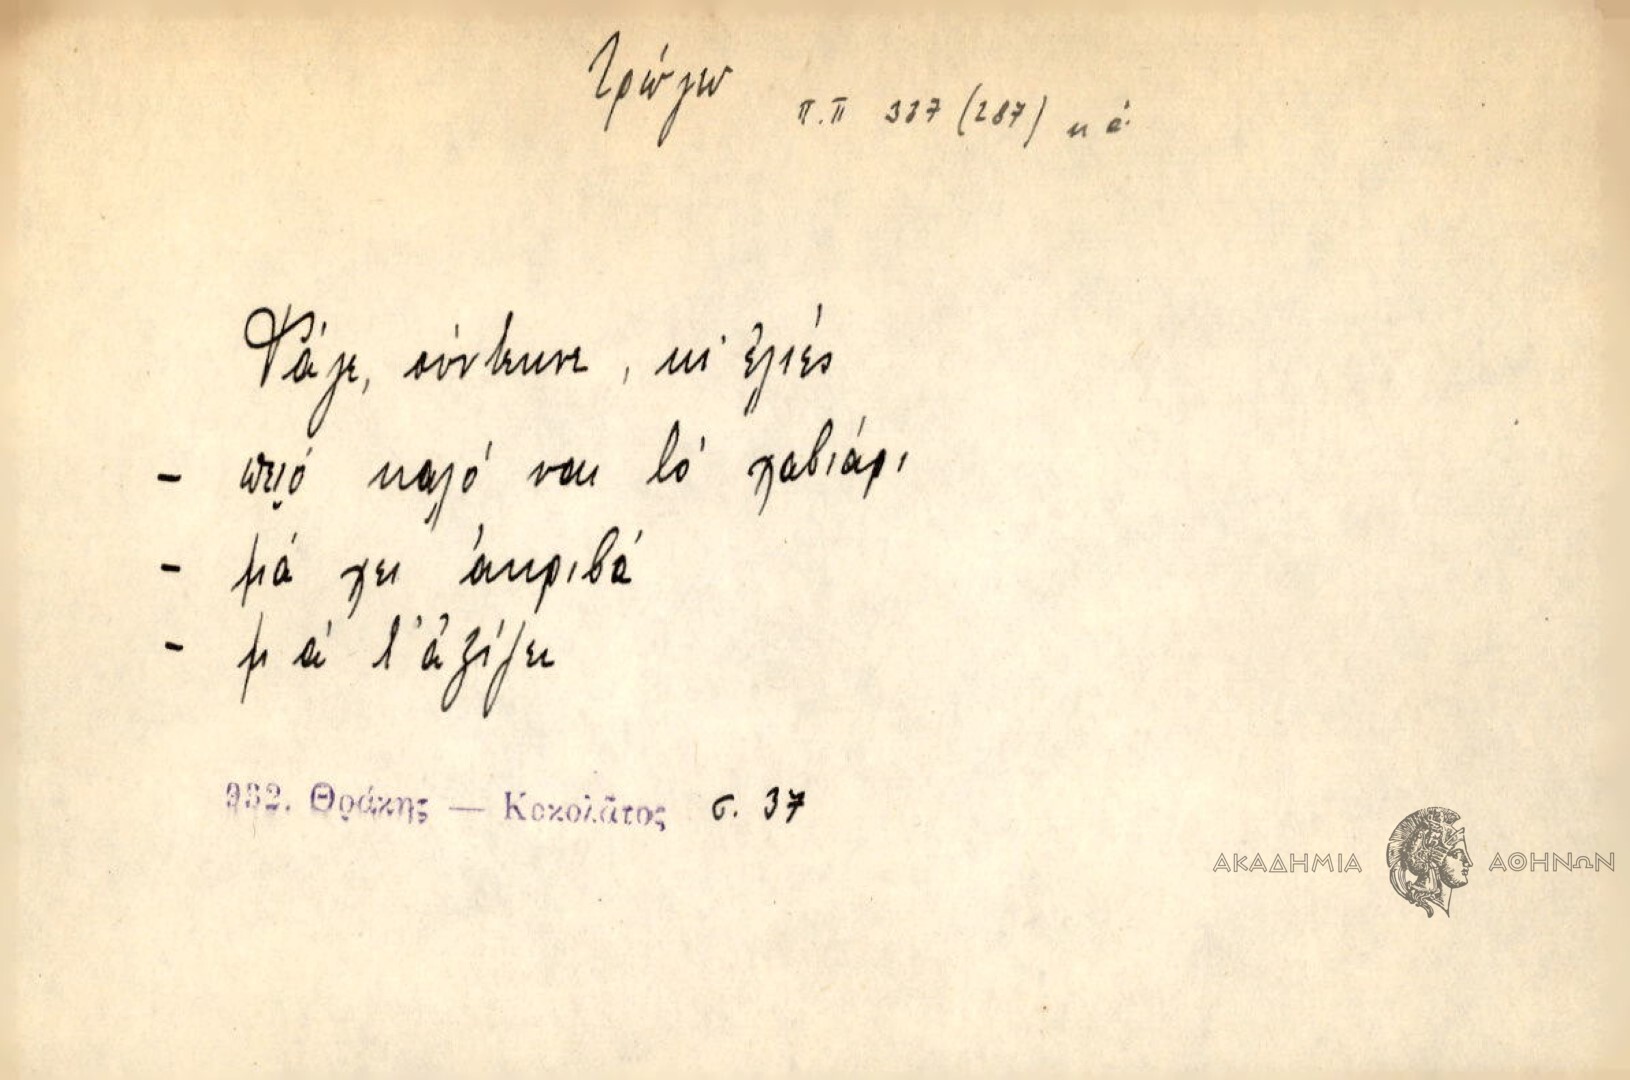 τρώγω
π.π 327 (287) κ ἀ.
Φάγε, σύντεκνε, κι' ἐλιές
- πιό καλό ναι τό χαβιάρι
- μά χει ἀκριβά
- μά τ' ἀξίζει
932. Θράκης — Κοκολᾶτος σ. 37
ΑΚΑΔΗΜΙΑ ΑΘΗΝΩΝ